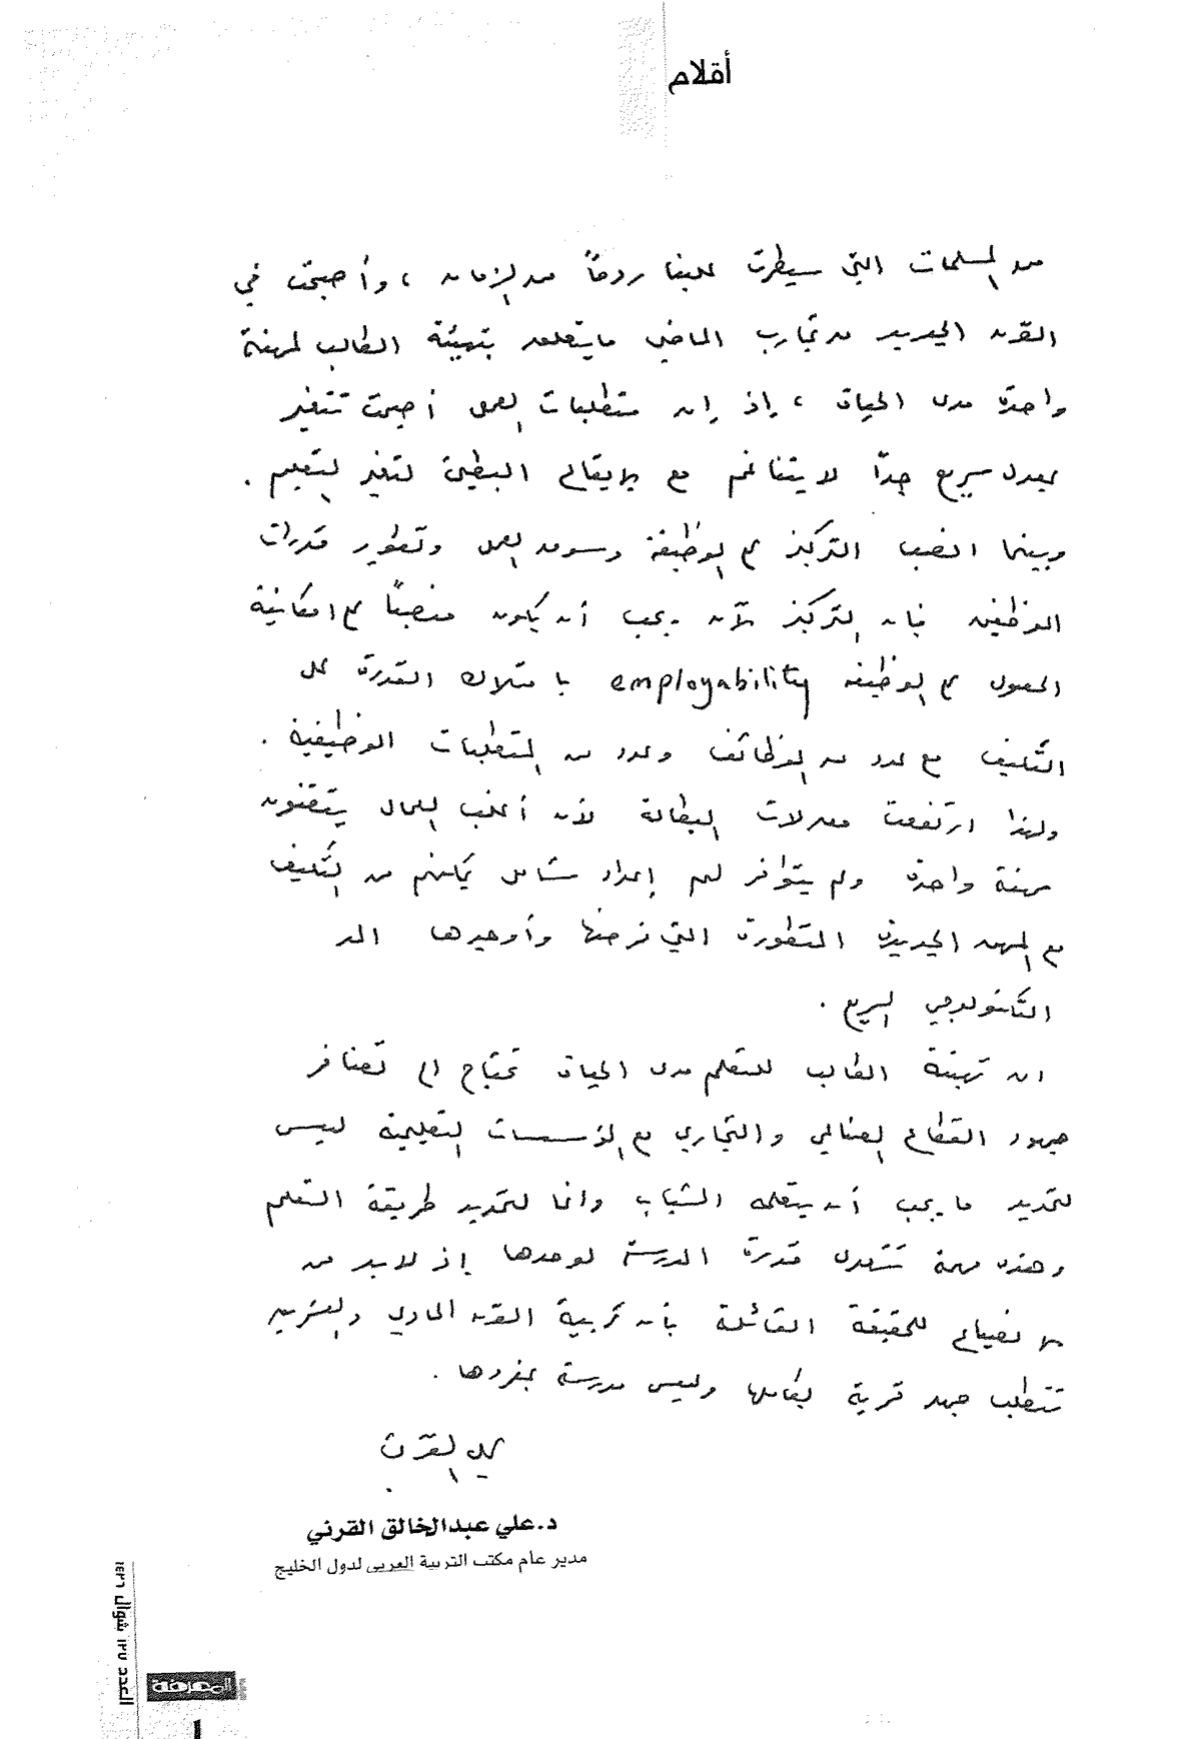 أقلام
من المسلمات التي سيطرت علينا ردحاً من الزمان ، وأصبحت في
القرن الجديد من تجارب الماضي ما يتعلق بتهيئة الطالب لمهنة
واحدة مدى الحياة ، إذ إن متطلبات العمل أصبحت تتغير
بمعدل سريع جداً لا يتناغم مع الإيقاع البطيئ لتغير التعليم .
وبينما انصب التركيز على الوظيفة وسوق العمل وتطوير قدرات
الموظفين فإن التركيز الآن يجب أن يكون منصباً على امكانية
الحصول على الوظيفة employability بامتلاك القدرة على
التكيف مع عدد من الوظائف وعدد من المتطلبات الوظيفية .
ولهذا ارتفعت معدلات البطالة لأن أغلب العمال يتقنون
مهنة واحدة ولم يتوافر لهم إعداد شامل يمكنهم من التكيف
مع المهن الجديدة المتطورة التي فرضها وأوجدها المد
التكنولوجي السريع .
ان تهيئة الطالب للتعلم مدى الحياة تحتاج الى تضافر
جهود القطاع الصناعي والتجاري مع المؤسسات التعليمية ليس
لتحديد ما يجب أن يتعلمه الشباب وانما لتحديد طريقة التعلم
وهذه مهمة تتعدى قدرة المدرسة لوحدها إذ لابد من
الانصياع للحقيقة القائلة بأن تربية القرن الحادي والعشرين
تتطلب جهد قرية بكاملها وليس مدرسة بمفردها .
علي القرني
د.علي عبدالخالق القرني
مدير عام مكتب التربية العربي لدول الخليج
العدد ١٢٧ شوال ١٤٢٦
المعرفة